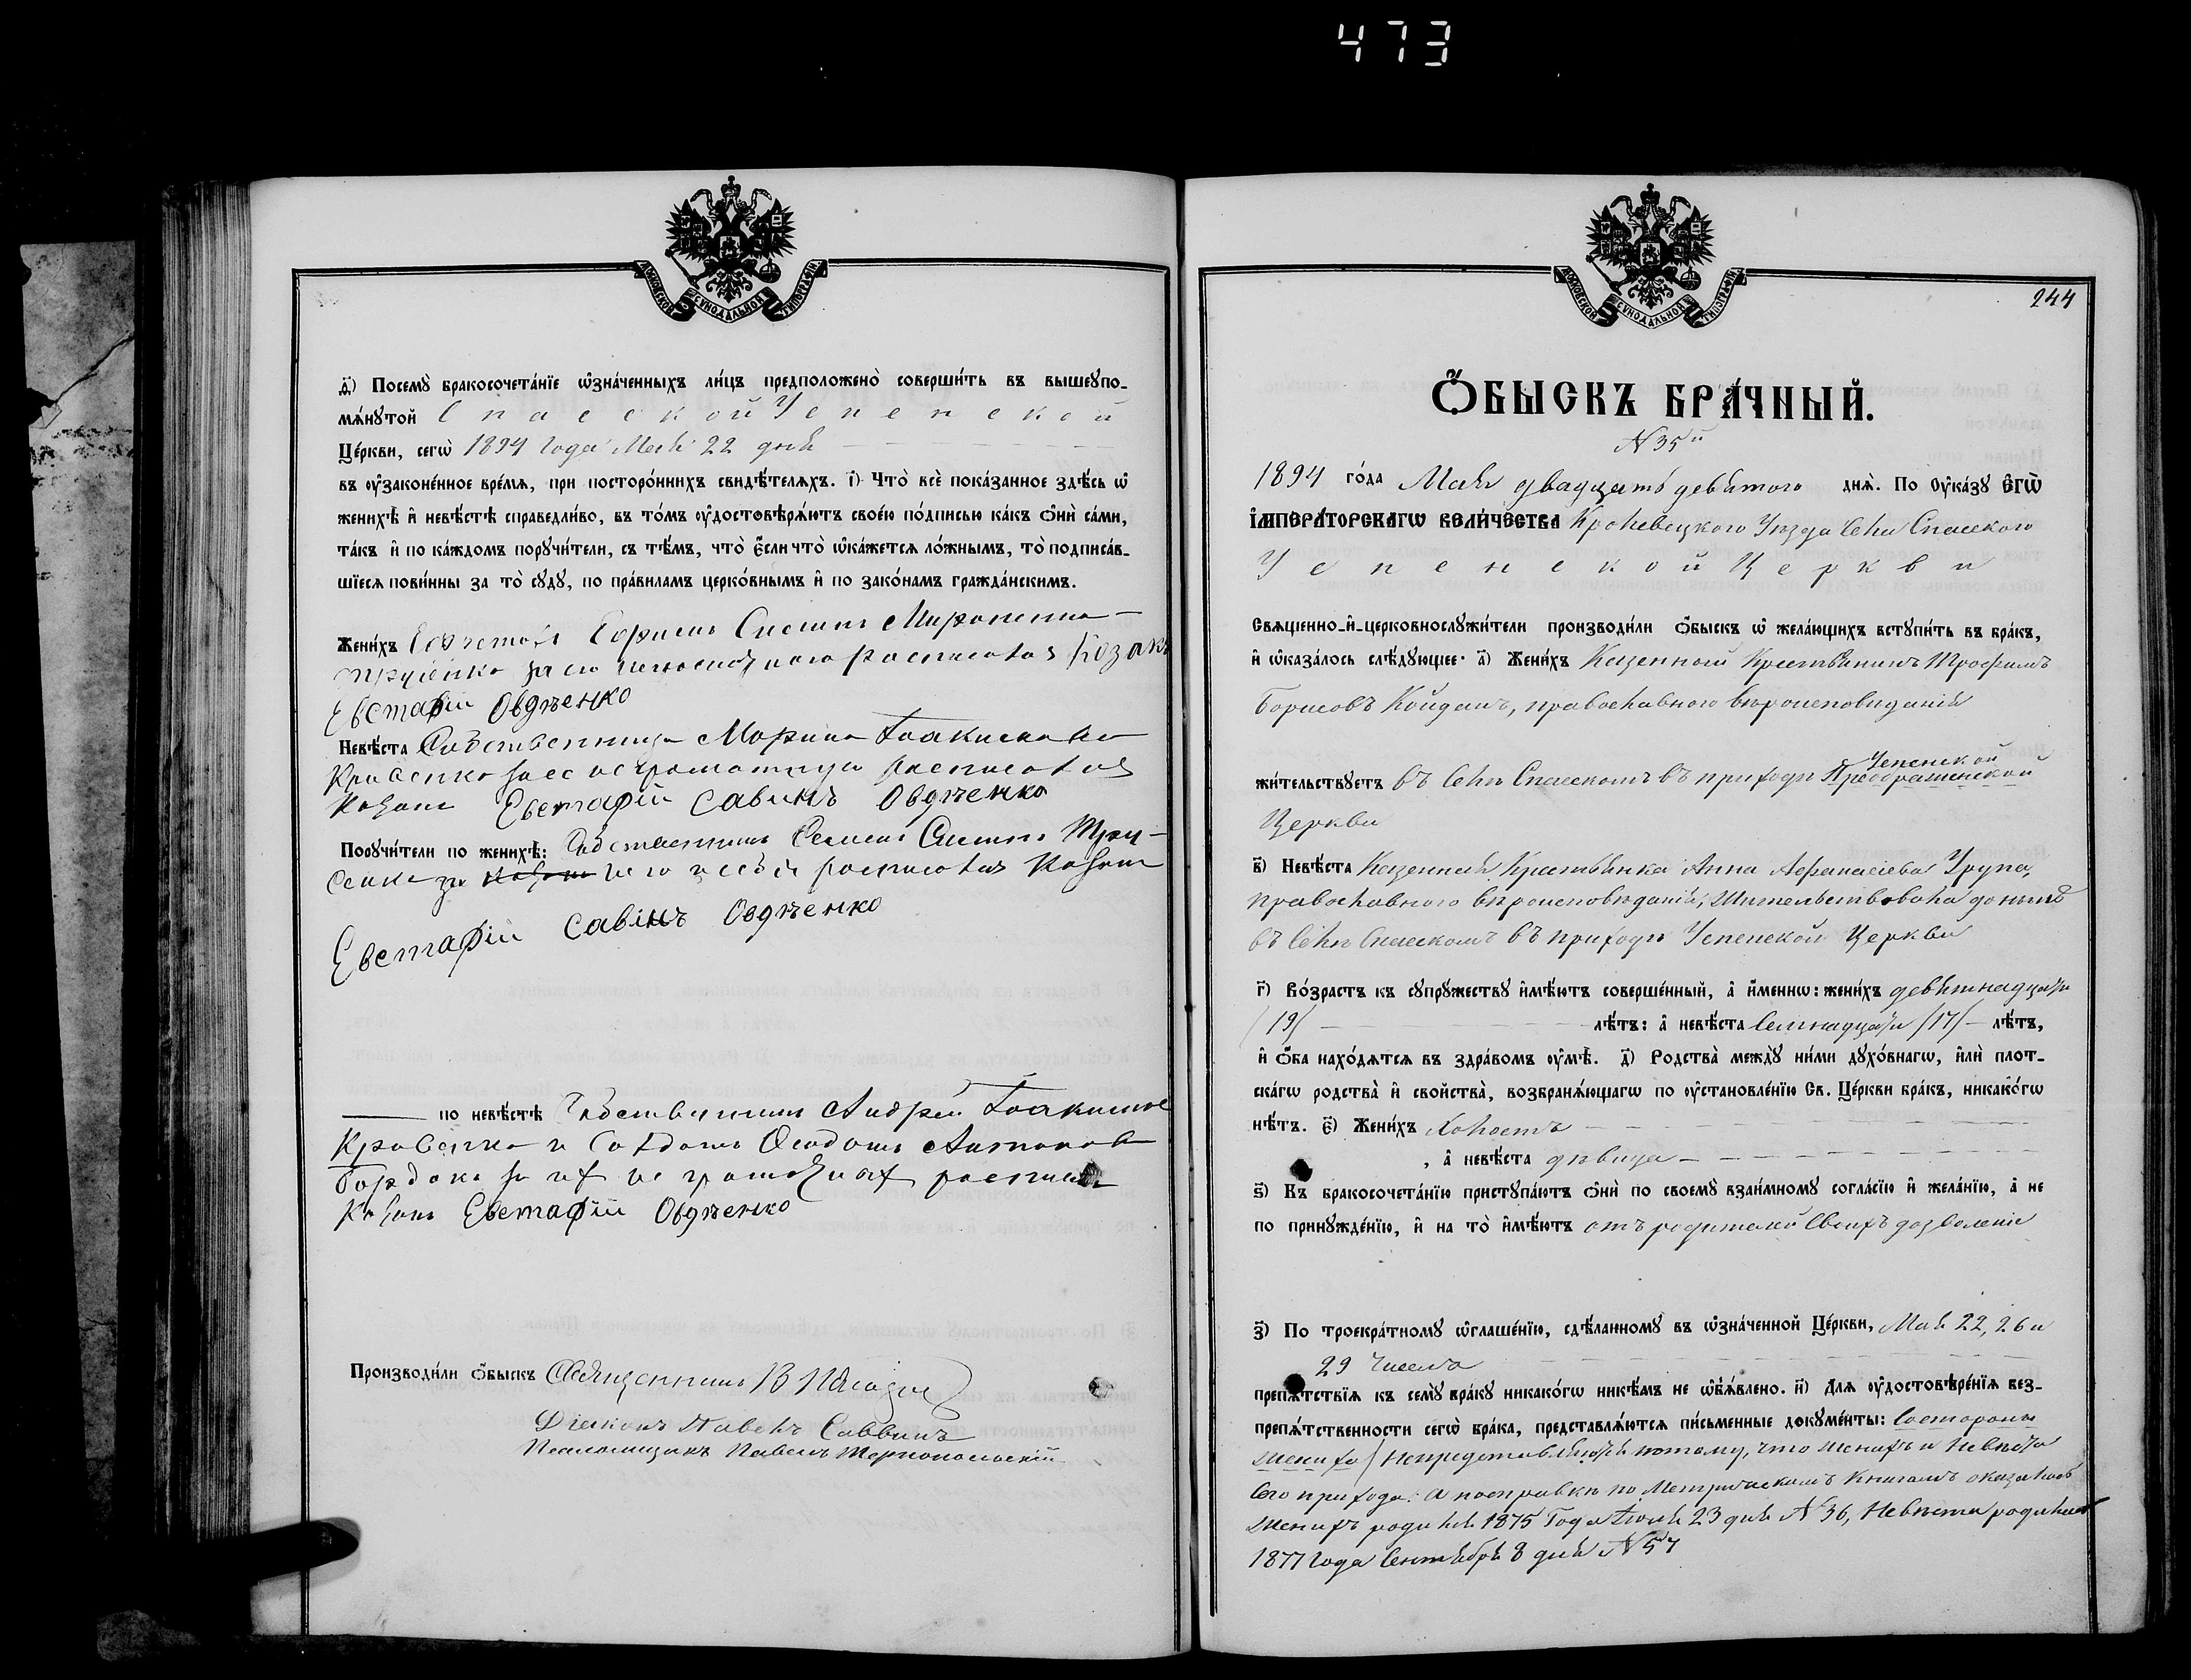 473
МОСКОВСКОЙ СѴНОДАЛЬНОЙ ТИПОГРАФІИ
ѳ҃) Посемꙋ̀ бракосочета́нїе ѡ҆зна́ченныхъ ли́цъ предположено̀ соверши́ть въ вышеꙋпо-
мѧ́нꙋтой Спасской Успенской
Це́ркви, сегѡ̀ 1894 года Мая 22 дня
въ ᲂу҆законе́нное вре́мѧ, при посторо́ннихъ свидѣ́телѧхъ. і҃) Что̀ всѐ пока́занное здѣ́сь ѡ҆
женихѣ̀ и҆ невѣ́стѣ справедли́во, въ то́мъ ᲂу҆достовѣрѧ́ютъ свое́ю по́дписью ка́къ ѻ҆нѝ са́ми,
та́къ и҆ по ка́ждомъ порꙋчи́тели, съ тѣ́мъ, что̀ є҆́сли что̀ ѡ҆ка́жетсѧ ло́жнымъ, то̀ подписа́в-
шїесѧ пови́нны за то̀ сꙋдꙋ̀, по пра́виламъ церко́внымъ и҆ по зако́намъ гражда́нскимъ.
Жени́хъ
за его росписался Козакъ
Евстафій Овдѣенко
Невѣ́ста Собственница Марина Іоакимова
Кривенко за ее неграмотную росписался
Козакъ Евстафій Савинъ Овдѣенко
Порꙋчи́тели по женихѣ̀: Собственникъ
за него и себя росписался Козакъ
Евстафій Савинъ Овдѣенко
по невѣ́стѣ Собственникъ Андрей Іоакимовъ
Кривенко и Солдатъ Антоновъ
за их не грамотных росписался
Козакъ Евстафій Овдѣенко
Производи́ли ѻ҆́быскъ Священникъ В.
Діаконъ Павелъ Саввинъ
Псаломщикъ Павелъ Тернопольскій
МОСКОВСКОЙ СѴНОДАЛЬНОЙ ТИПОГРАФІИ
244
Ѻ҆́БЫСКЪ БРА́ЧНЫЙ.
№ 35й
1894 го́да Мая двадцать девятого днѧ̀. По Оу҆ка́зꙋ Є҆ГѠ̀
І҆МПЕРА́ТОРСКАГѠ ВЕЛИ́ЧЕСТВА Кролевецкого Уѣзда Села Спасского
Успенской Церкви
Свѧще́нно-и҆-церковнослꙋжи́тели производи́ли ѻ҆́быскъ ѡ҆ жела́ющихъ встꙋпи́ть въ бра́къ,
и҆ ѡ҆каза́лось слѣ́дꙋющее: а҃) Жени́хъ Казенный Крестьянинъ Трофимъ
Борисовъ Койдашъ, православного вѣроисповѣданія
Успенской
жи́тельствꙋетъ въ Селѣ Спасскомъ въ приходѣ Преображенской
Церкви
в҃) Невѣ́ста Казенная Крестьянка Анна Афанасіева Урупа,
православного вѣроисповѣданія, жительствовала до нынѣ
въ Селѣ Спасскомъ въ приходѣ Успенской Церкви
г҃) Во́зрастъ къ сꙋпрꙋ́жествꙋ и҆мѣ́ютъ соверше́нный, а҆ и҆́меннѡ: жени́хъ девятнадцати
/19/ лѣ́тъ: а҆ невѣ́ста Семнадцати /17/ лѣ́тъ,
и҆ ѻ҆́ба нахо́дѧтсѧ въ здра́вомъ ᲂу҆мѣ̀. д҃) Родства̀ междꙋ̀ ни́ми дꙋхо́внагѡ, и҆лѝ плот-
ска́гѡ родства̀ и҆ сво́йства̀, возбранѧ́ющагѡ по ᲂу҆становле́нїю Св. Це́ркви бра́къ, никако́гѡ
нѣ́тъ. є҃) Жени́хъ Холостъ
, а҆ невѣ́ста дѣвица
ѕ҃) Къ бракосочета́нїю пристꙋпа́ютъ ѻ҆нѝ по своемꙋ̀ взаи́мномꙋ согла́сїю и҆ жела́нїю, а҆ не
по принꙋжде́нїю, и҆ на то̀ и҆мѣ́ютъ отъ родителей своихъ дозволеніе
з҃) По троекра́тномꙋ ѡ҆глаше́нїю, сдѣ́ланномꙋ въ ѡ҆зна́ченной Це́ркви, Мая 22, 26 и
29 числа
препѧ́тствїѧ къ семꙋ̀ бра́кꙋ никако́гѡ никѣ́мъ не ѡ҆б̾ѧ́влено. и҃) Длѧ ᲂу҆достовѣре́нїѧ без-
препѧ́тственности сегѡ̀ бра́ка, представлѧ́ютсѧ пи́сьменные докꙋме́нты: Состороны
жениха / Непредставляются потому, что женихъ и невѣста
Сего прихода: а посправкѣ по Метрическимъ Книгамъ оказалось
Женихъ родился 1875 Года Іюля 23 дня № 36, Невѣста родилась
1877 года Сентября 8 дня № 57